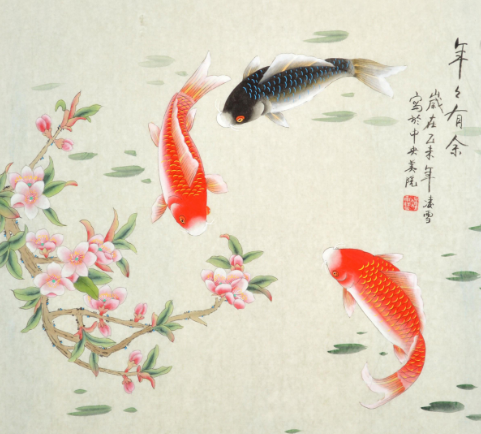 年々有余
歲在乙未年凌雪
寫於中央美院